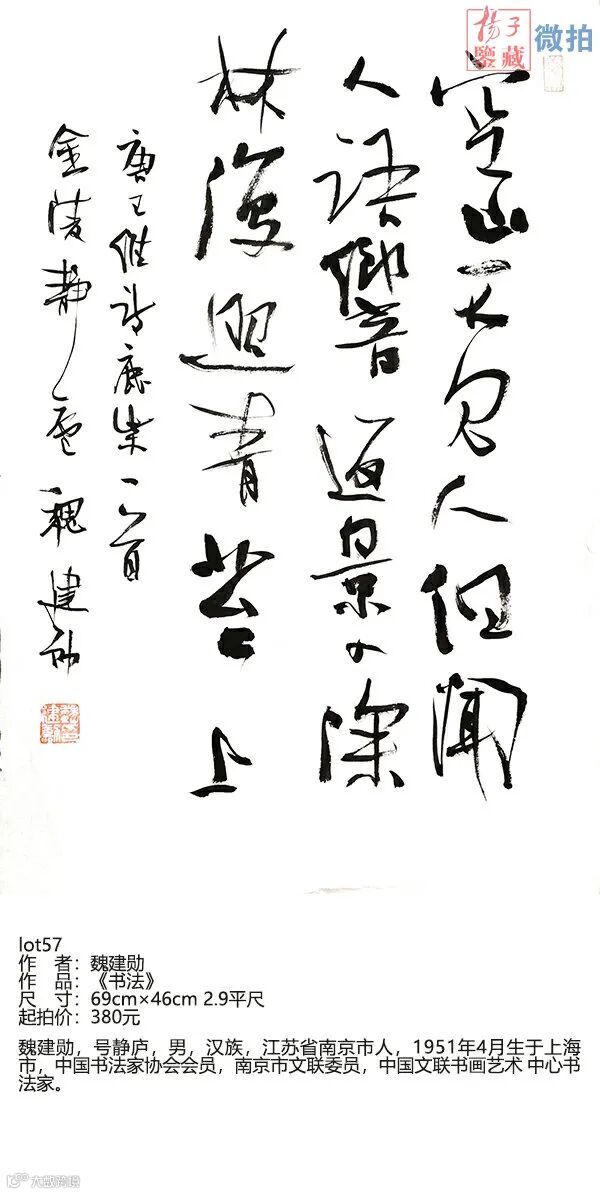 揚子
鑒藏
微拍
空山不見人但聞
人語響返景入深
林復照青苔上
唐王維詩鹿柴一首
金陵靜廬魏建勛
lot57
作 者：魏建勋
作 品：《书法》
尺 寸：69cm×46cm 2.9平尺
起拍价：380元
魏建勋，号静庐，男，汉族，江苏省南京市人，1951年4月生于上海
市，中国书法家协会会员，南京市文联委员，中国文联书画艺术 中心书
法家。
大数跨境